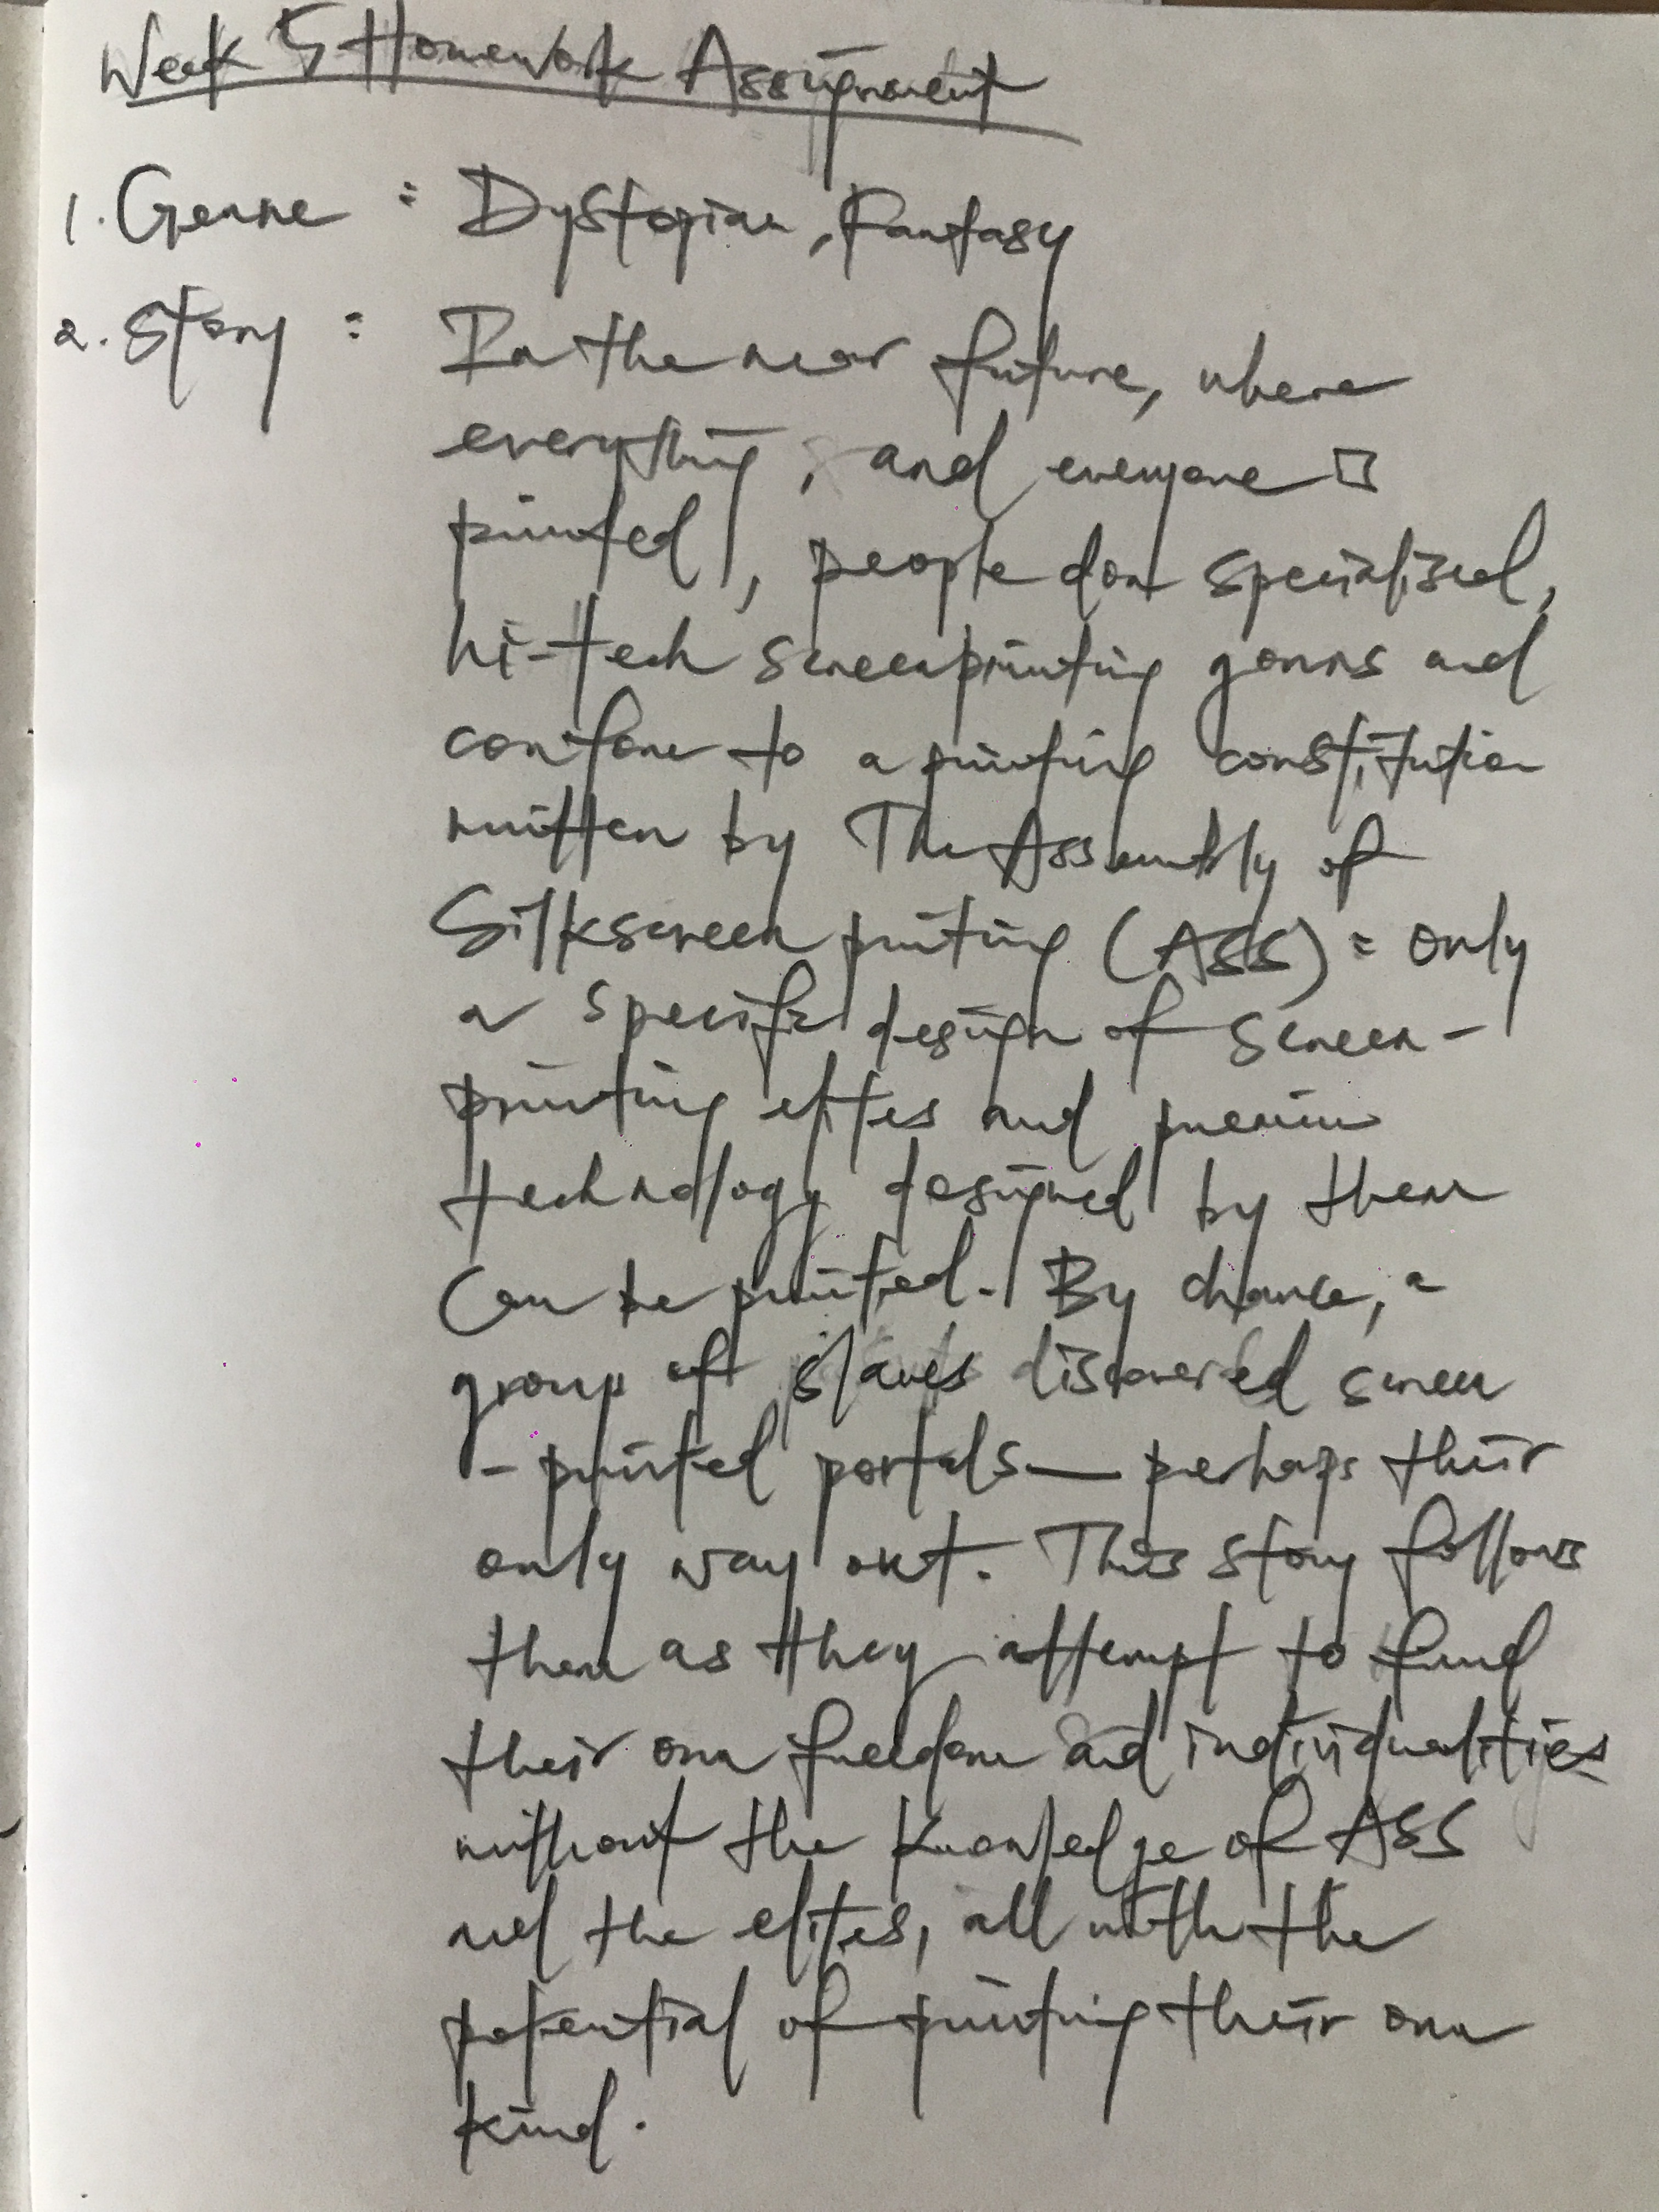 Week 5 Homework Assignment
1. Genre : Dystopian, Fantasy
2. Story : In the near future, where
everything, and everyone is
printed, people don specialised,
hi-tech screenprinting gowns and
conform to a printing constitution
written by The Assembly of
Silkscreen printing (ASS) : only
a specific design of screen-
printing elites and premium
technology designed by them
can be printed. By chance, a
group of slaves discovered screen
-printed portals — perhaps their
only way out. This story follows
them as they attempt to find
their own freedom and individualities
without the knowledge of ASS
and the elites, all with the
potential of printing their own
kind.